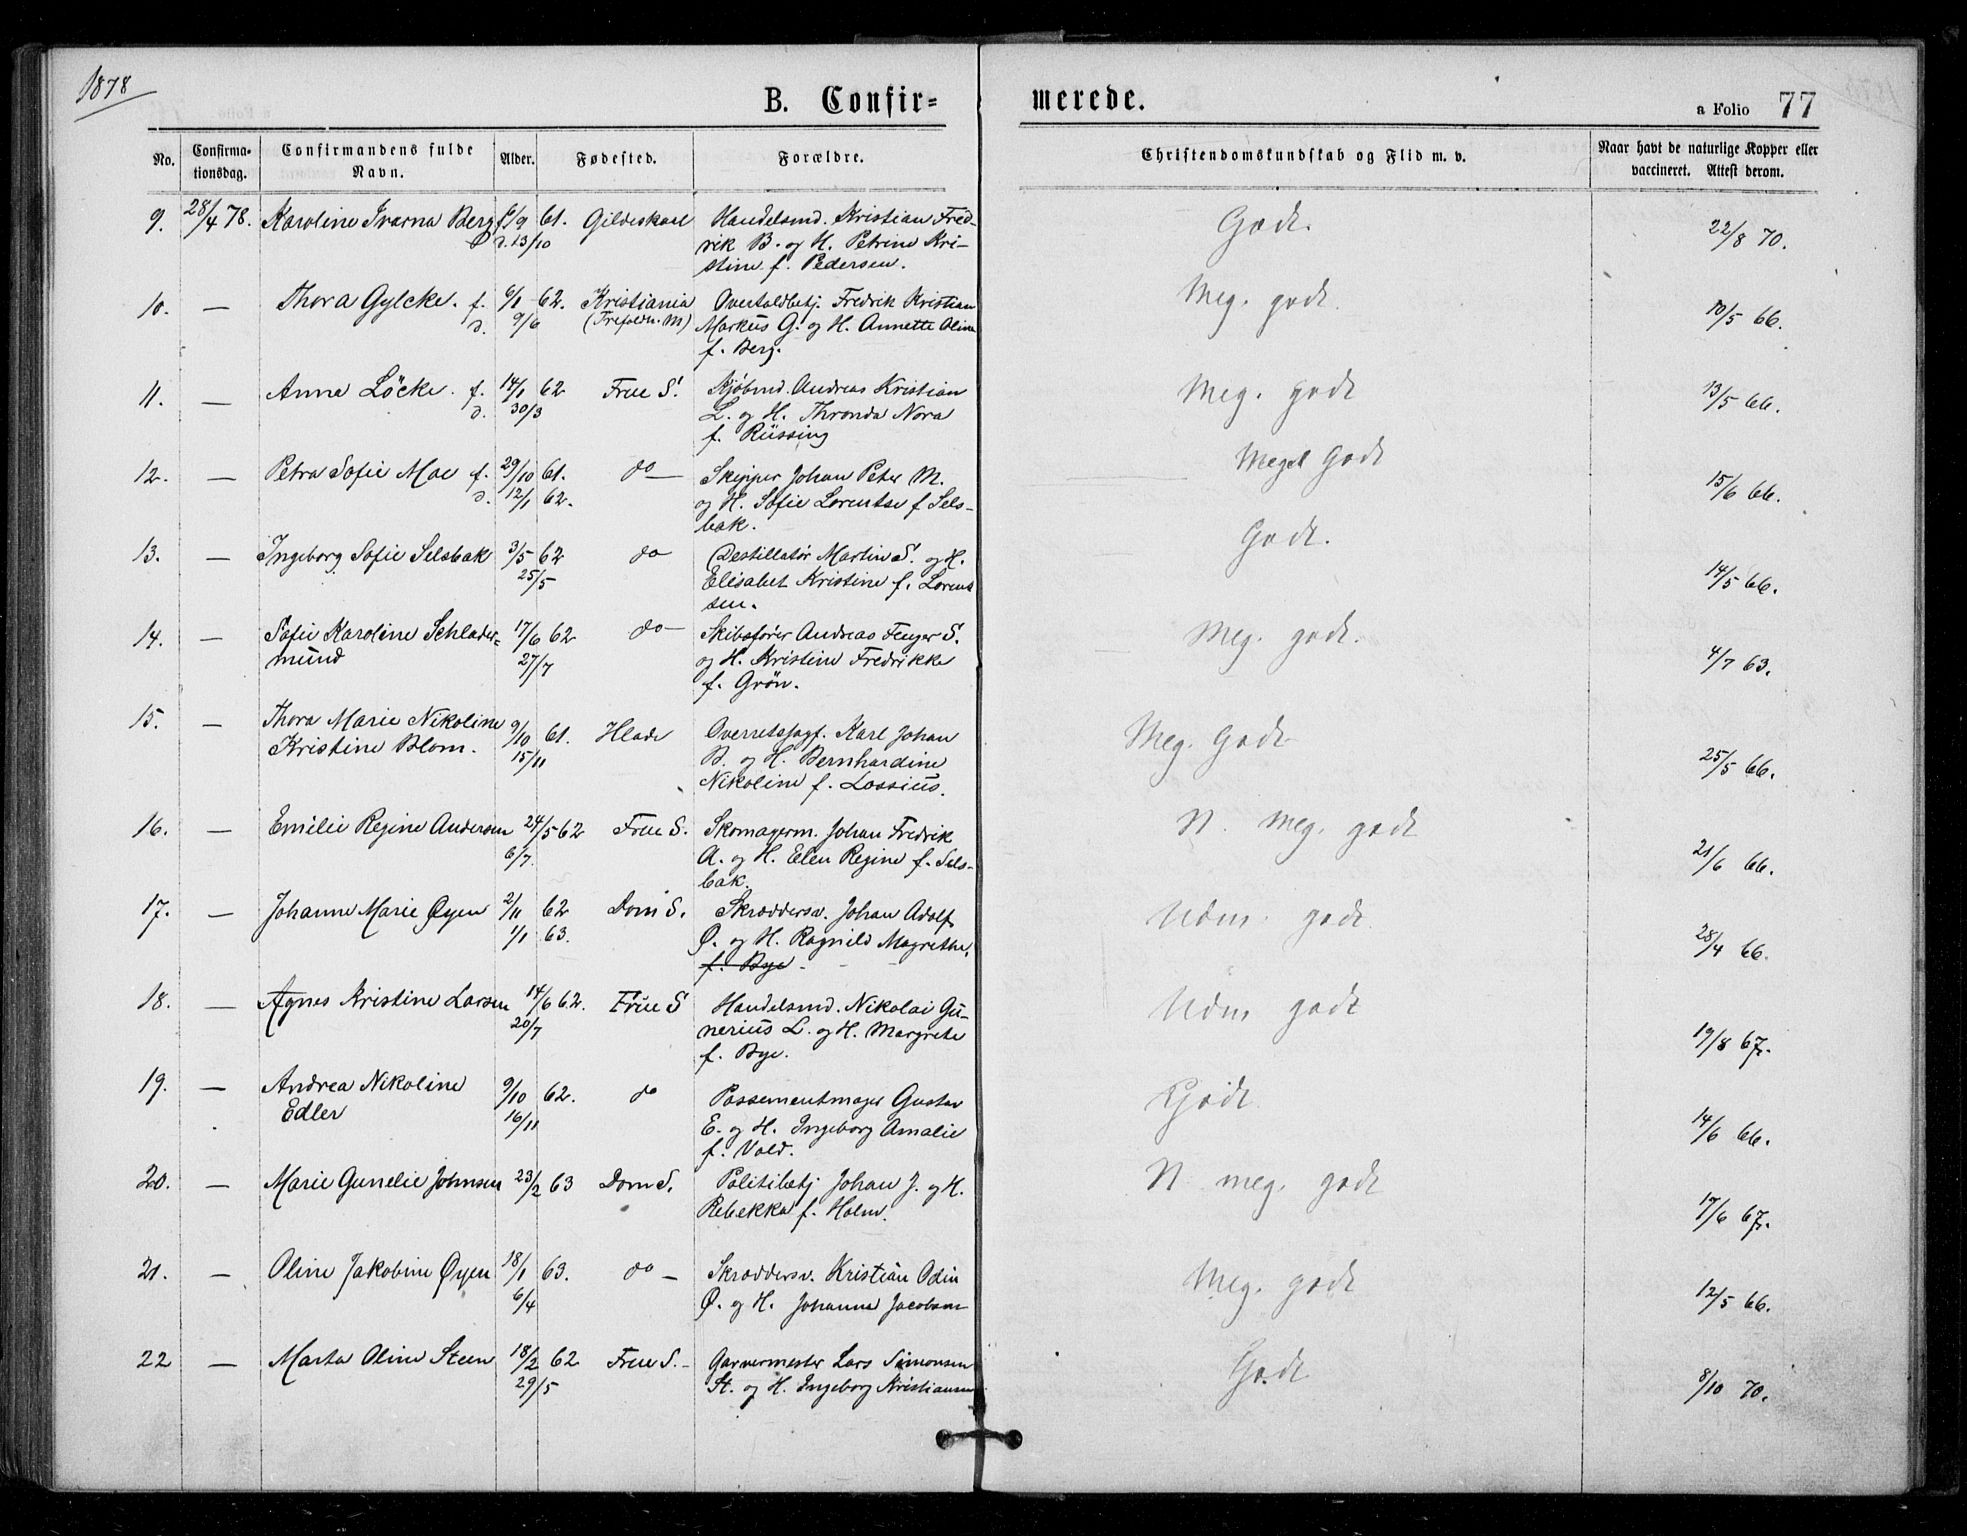 1878
B. Confirmerede.
a Folio 77
No. Confirmationsdag. Confirmandens fulde Navn. Alder. Fødested. Forældre. Christendomskundskab og Flid m. v. Naar havt de naturlige Kopper eller vaccineret. Attest derom.
9. 28/4 78. Karoline Ivarna Berg f. 6/9 61. Gildeskaal Handelsmd. Kristian Fred- Godt. 22/8 70.
d. 13/10 rik B. og H. Petrine Kri-
stine f. Pedersen.
10. — Thora Gylcke. f. 6/1 62. Kristiania Overtoldbetj. Fredrik Kristian Meg. godt 10/5 66.
d. 9/6 (Trefoldh. M) Markus G. og H. Annette Oline
f. Berg.
11. — Anna Löcke. f. 14/1 62 Frue S. Kjøbmd. Andreas Kristian Meg. godt 13/5 66.
d. 30/3 L. og H. Thronda Nora
f. Rüssing
12. — Petra Sofie Moe f. 29/10 61. do — Skipper Johan Peter M. Meget Godt 15/6 66.
d. 12/1 62. og H. Sofie Lorentse f Sels-
bak.
13. — Ingeborg Sofie Selsbak 3/5 62 do Destillatör Martin S. og H. Godt. 14/5 66.
25/5 Elisabet Kristine f. Lorent
sen.
14. — Sofie Karoline Schlader- 17/6 62 do — Skibsfører Andreas Fenger S. Meg. godt. 4/7 63.
mund 27/7 og H. Kristine Fredrikke
f. Grön.
15. — Thora Marie Nikoline 9/10 61. Hlade Overretssagf. Karl Johan Meg. Godt 25/5 66.
Kristine Blom. 15/11 B. og H. Bernhardine
Nikoline f. Lossius.
16. — Emilie Regine Andersen 24/5 62 Frue S. Skomagerm. Johan Fredrik N. meg. godt 21/6 66.
6/7. A. og H. Elen Regine f. Sels-
bak.
17. — Johanne Marie Øyen 2/11 62 Dom S. Skræddersv. Johan Adolf Udm. godt 28/4 66.
1/1 63. Ø. og H. Ragnild Magrethe,
f. Bye -
18. — Agnes Kristine Larsen 14/6 62. Frue S Handelsmd. Nikolai Gu- Udm. godt 19/8 67.
20/7 nerius L. og H. Margrete
f. Bye.
19. — Andrea Nikoline 9/10 62. do Possementmager Gustav Godt 14/6 66.
Edler 16/11 E. og H. Ingeborg Amalie
f. Vold.
20. — Marie Gunelie Johnsen 23/2 63 Dom S. Politibetj Johan J. og H. N meg. godt 17/6 67.
Rebekka f. Holm.
21. — Oline Jakobine Øyen 18/1 63. do — Skræddersv. Kristian Odin Meg. godt 12/5 66.
6/4 Ø. og H. Johanna Jacobsen
22 — Marta Oline Steen 18/2 62 Frue S. - Garvermester Lars Simonsen Godt 8/10 70.
29/5 St. og H. Ingeborg Kristiansen